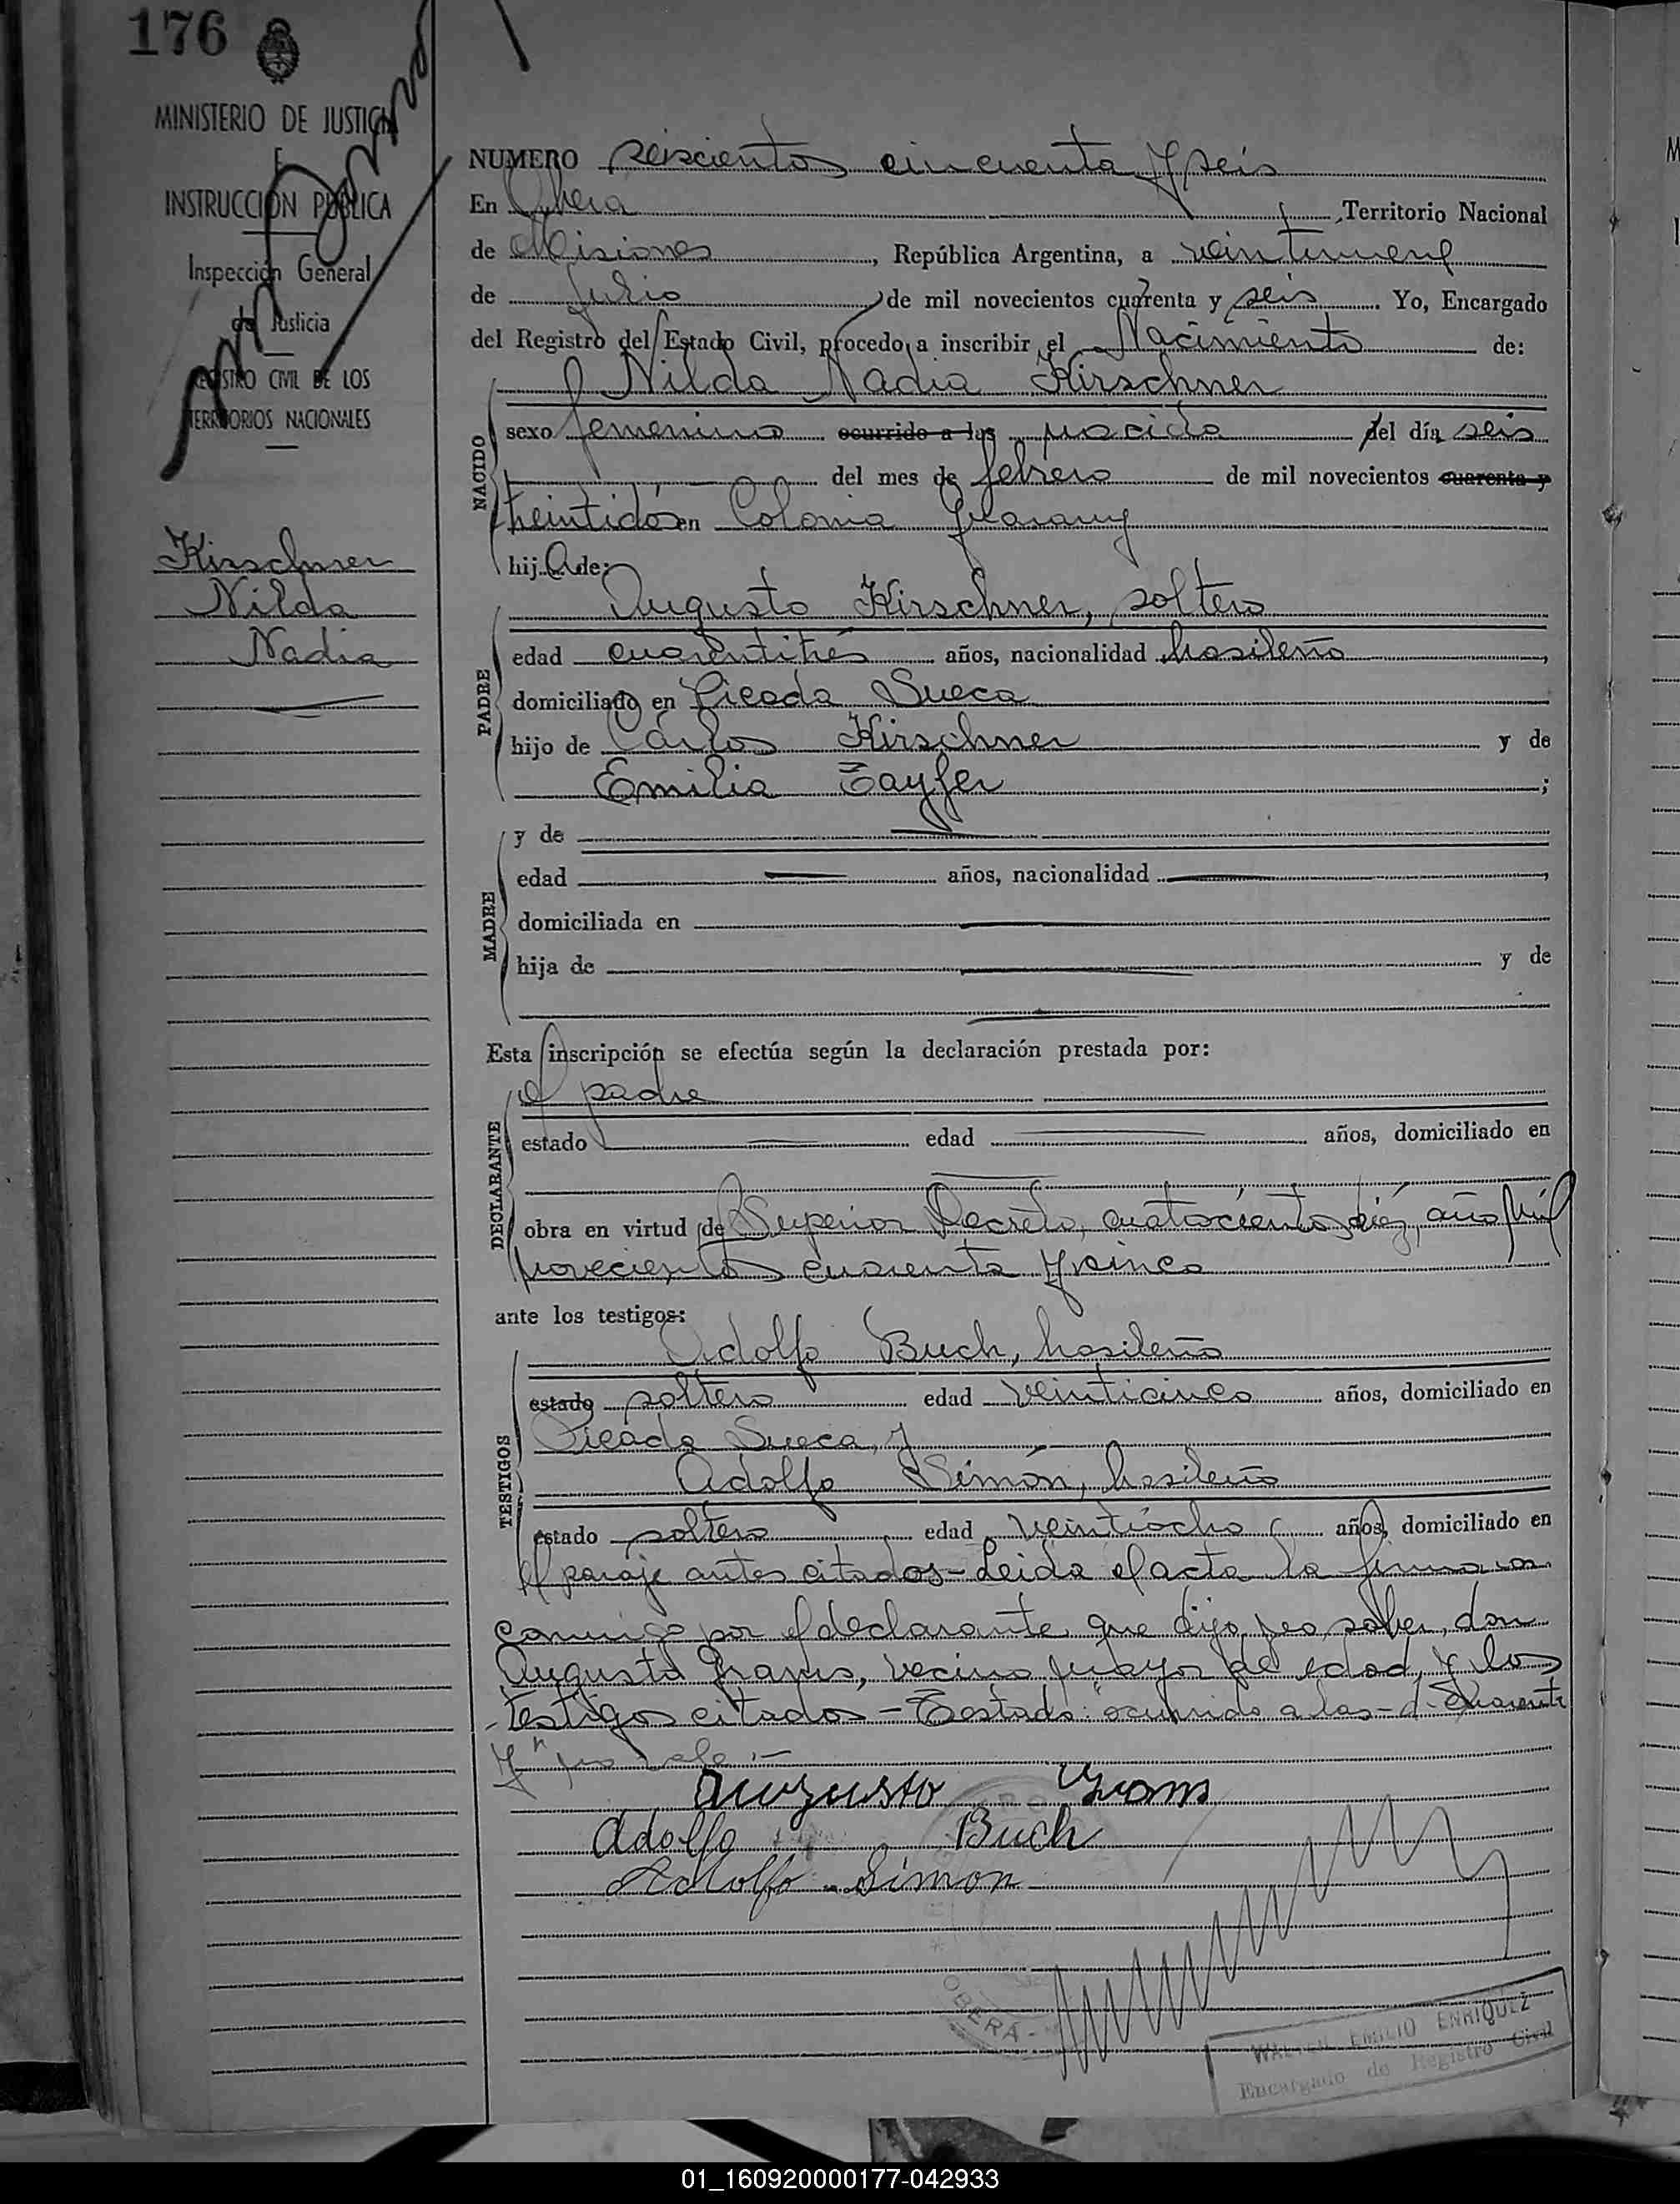 176
MINISTERIO DE JUSTICIA
E
INSTRUCCIÓN PÚBLICA
Inspección General
de Justicia
REGISTRO CIVIL DE LOS
TERRITORIOS NACIONALES
Kirschner
Nilda
Nadia
NUMERO seiscientos cincuenta y seis
En Obera, Territorio Nacional
de Misiones, República Argentina, a veintinueve
de Julio de mil novecientos cuarenta y seis. Yo, Encargado
del Registro del Estado Civil, procedo a inscribir el Nacimiento de:
Nilda Nadia Kirschner
NACIDO
sexo femenino ocurrido a las nacida del día seis
del mes de febrero de mil novecientos cuarenta y
treintidós en Colonia Guarany
hija de:
Augusto Kirschner, soltero
PADRE
edad cuarentitrés años, nacionalidad brasileño,
domiciliado en Picada Sueca
hijo de Carlos Kirschner y de
Emilia Tayfer;
MADRE
y de
edad años, nacionalidad,
domiciliada en
hija de y de
Esta inscripción se efectúa según la declaración prestada por:
el padre
DECLARANTE
estado edad años, domiciliado en
obra en virtud de Superior Decreto, cuatrocientos diez, año mil
novecientos cuarenta y cinco
ante los testigos:
Adolfo Buch, brasileño
TESTIGOS
estado soltero edad veinticinco años, domiciliado en
Picada Sueca, y
Adolfo Simón, brasileño
estado soltero edad veintiocho años, domiciliado en
el paraje antes citados - Leida el acta la firmaron
conmigo por el declarante que dijo no saber, don
Augusto, vecino mayor de edad, y los
testigos citados - Testado: "ocurrido a las - d - cuarenta
y" no vale.-
Augusto
Adolfo Buch
Adolfo Simon
OBERÁ -
WALTER EMILIO ENRIQUEZ
Encargado de Registro Civil
01_160920000177-042933